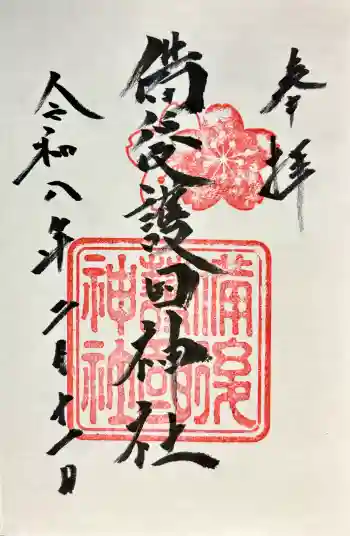 奉拝
備後護国神社
備後
護国
神社
令和八年二月十一日